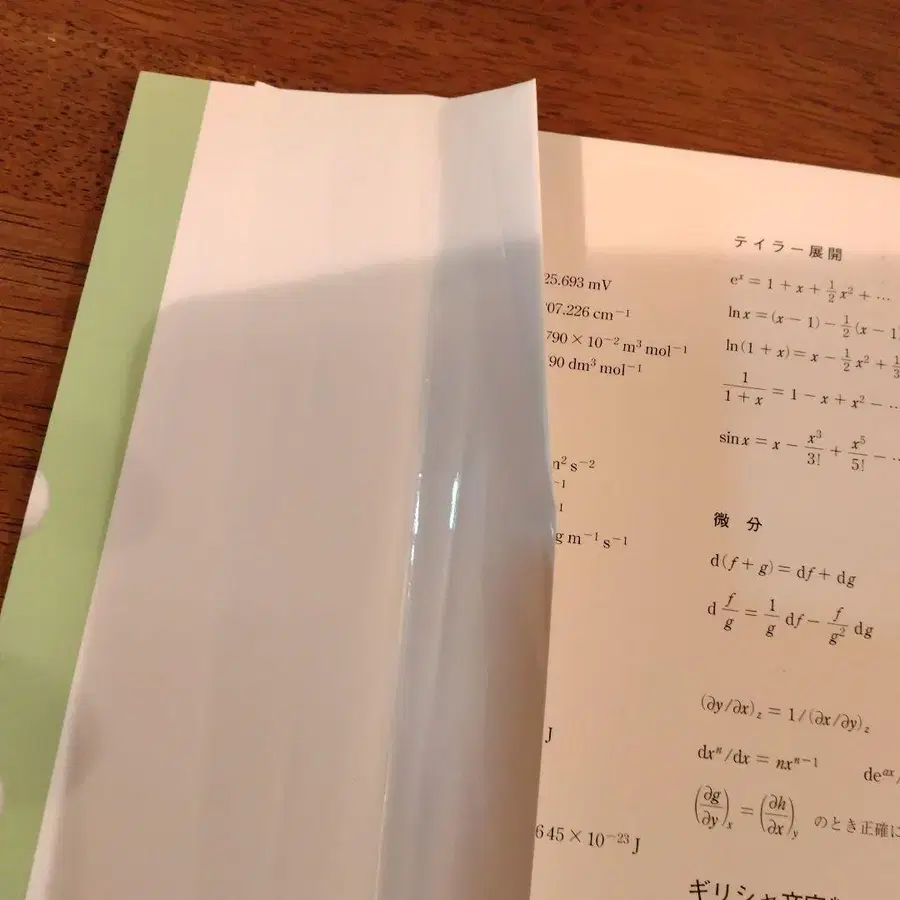 25.693 mV
07.226 cm⁻¹
790 × 10⁻² m³ mol⁻¹
90 dm³ mol⁻¹
m² s⁻²
⁻¹
g m⁻¹ s⁻¹
J
645 × 10⁻²³ J
テイラー展開
eˣ = 1 + x + 1/2 x² + …
ln x = (x − 1) − 1/2 (x − 1
ln(1 + x) = x − 1/2 x² + 1/3
1/(1 + x) = 1 − x + x² − …
sin x = x − x³/3! + x⁵/5! − …
微 分
d(f + g) = df + dg
d f/g = 1/g df − f/g² dg
(∂y/∂x)z = 1/(∂x/∂y)z
dxⁿ/dx = nxⁿ⁻¹ deᵃˣ/
(∂g/∂y)x = (∂h/∂x)y のとき正確に
ギリシャ文字